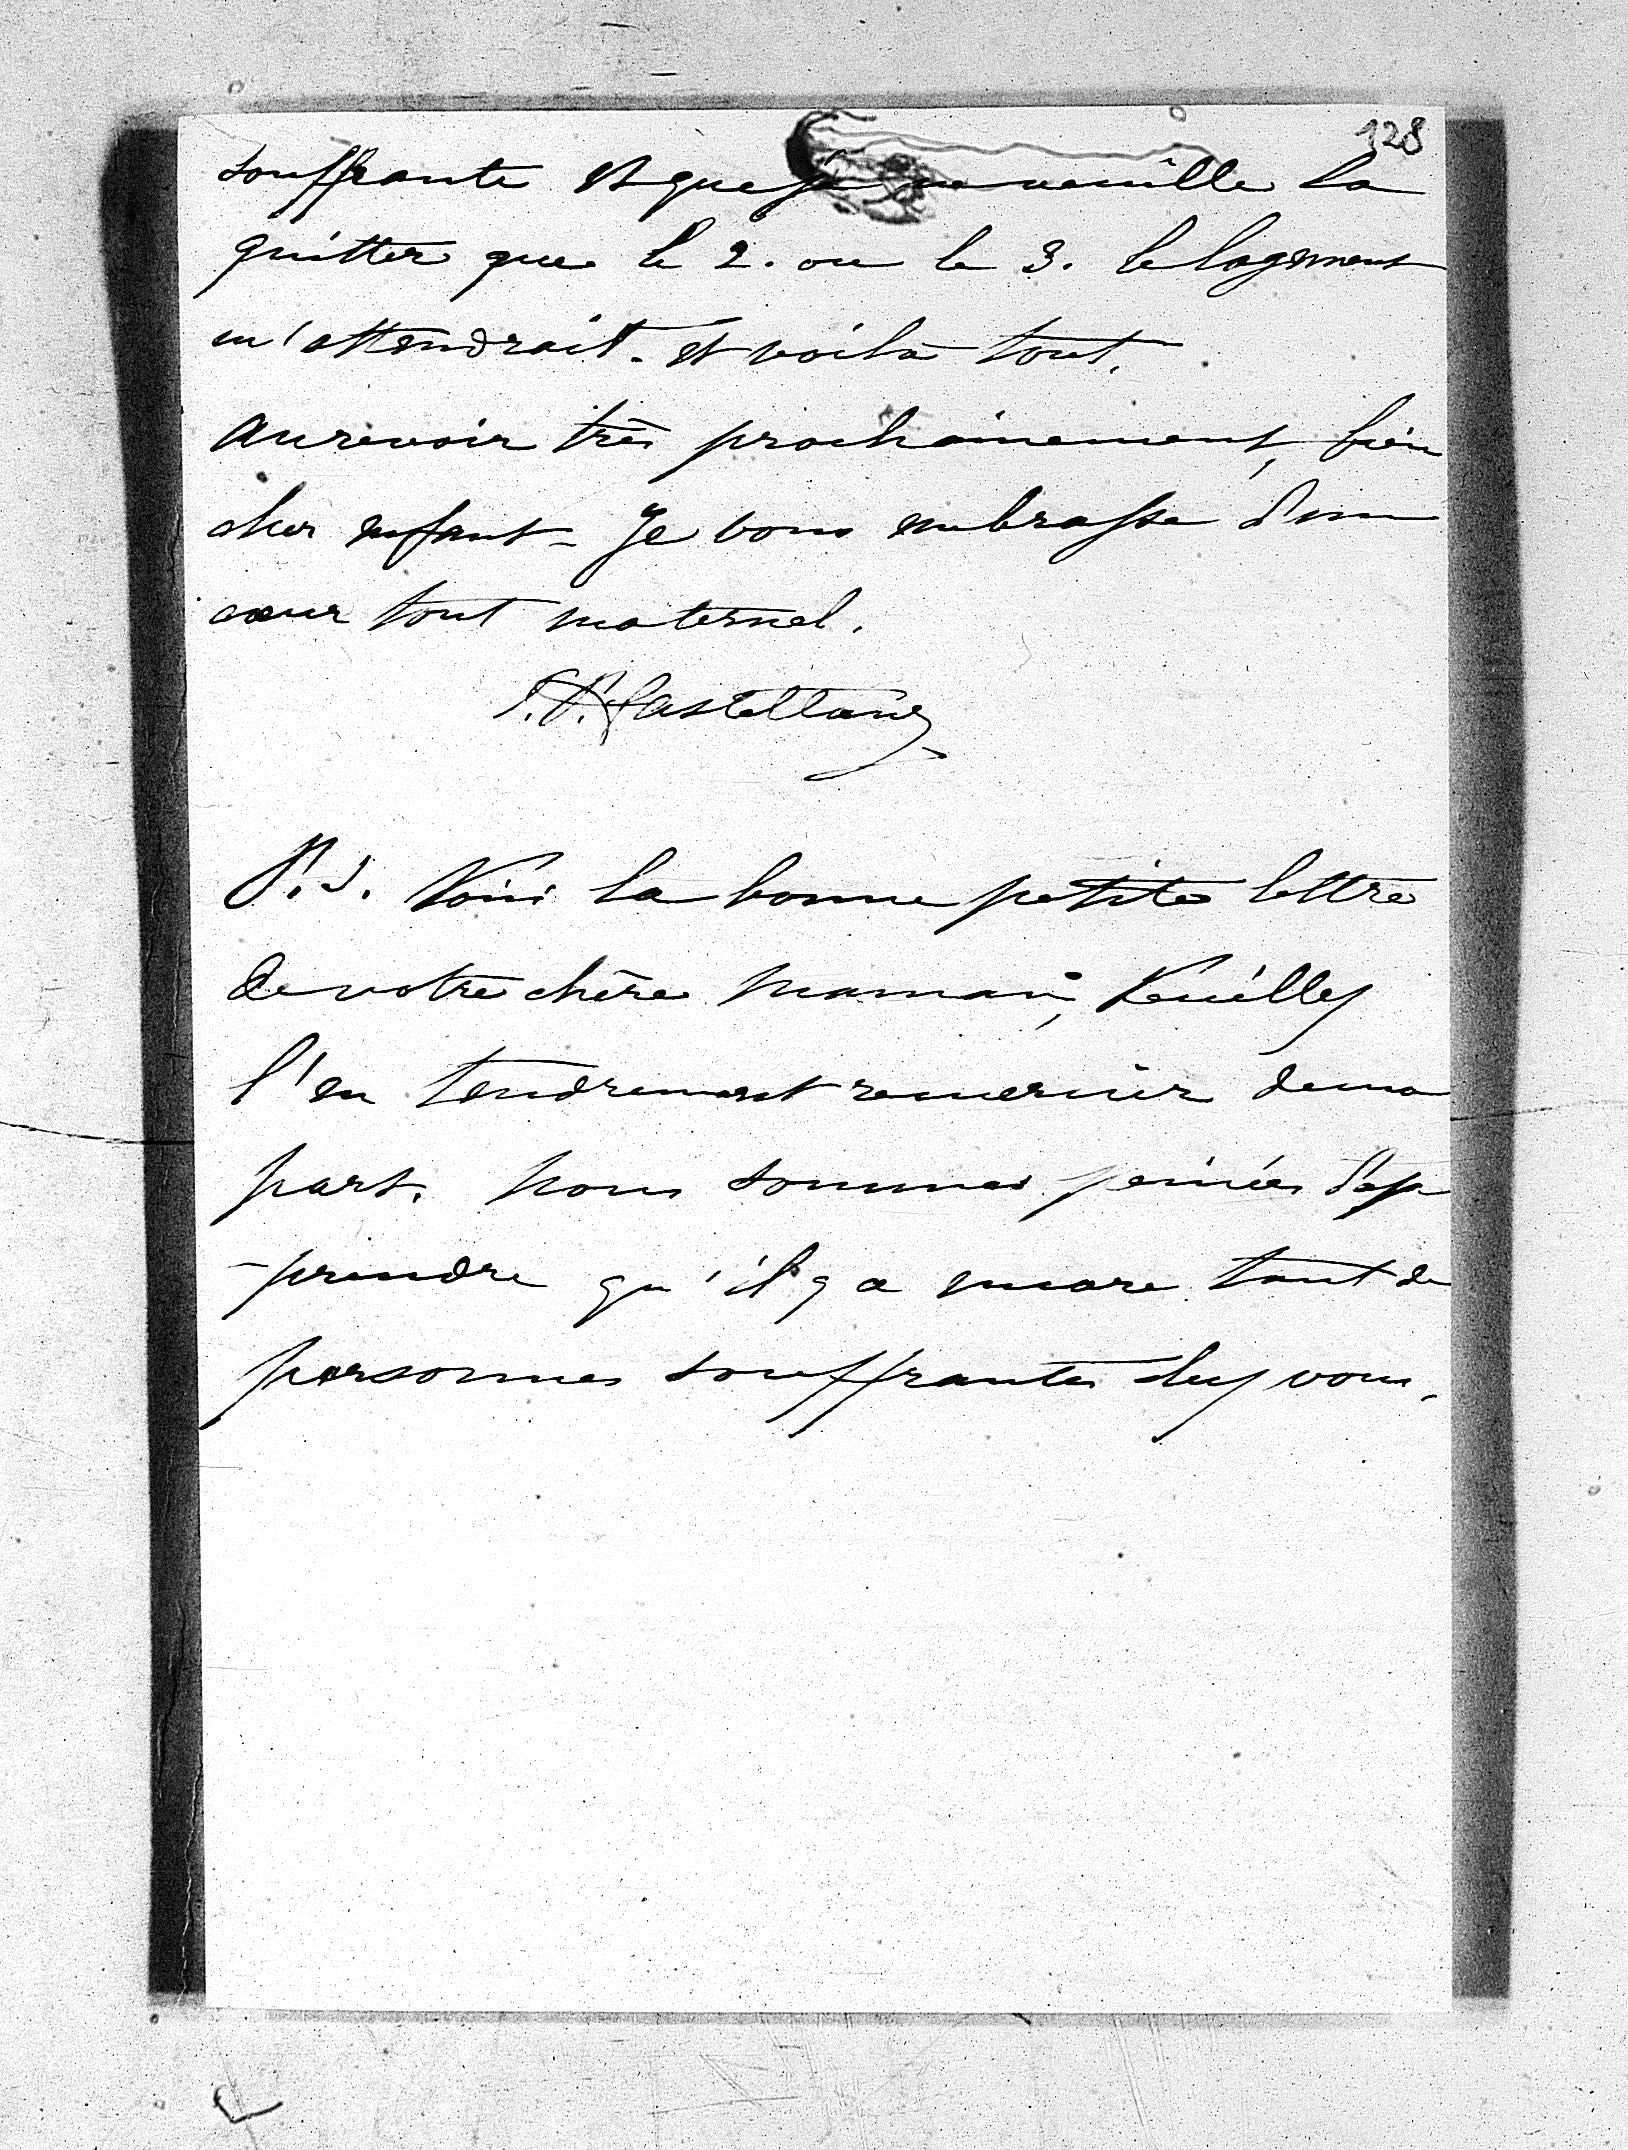 128
souffrante et que je ne veuille la
quitter que le 2. ou le 3. le logement
m'attendrait. et voilà tout.
au revoir très prochainement, bien
cher enfant - Je vous embrasse d'un
cœur tout maternel.
Castellane
P.S. Voici la bonne petite lettre
de votre chère maman, Veuillez
l'en tendrement remercier de ma
part. Nous sommes peinées d'ap
-prendre qu'il y a encore tant de
personnes souffrantes chez vous.